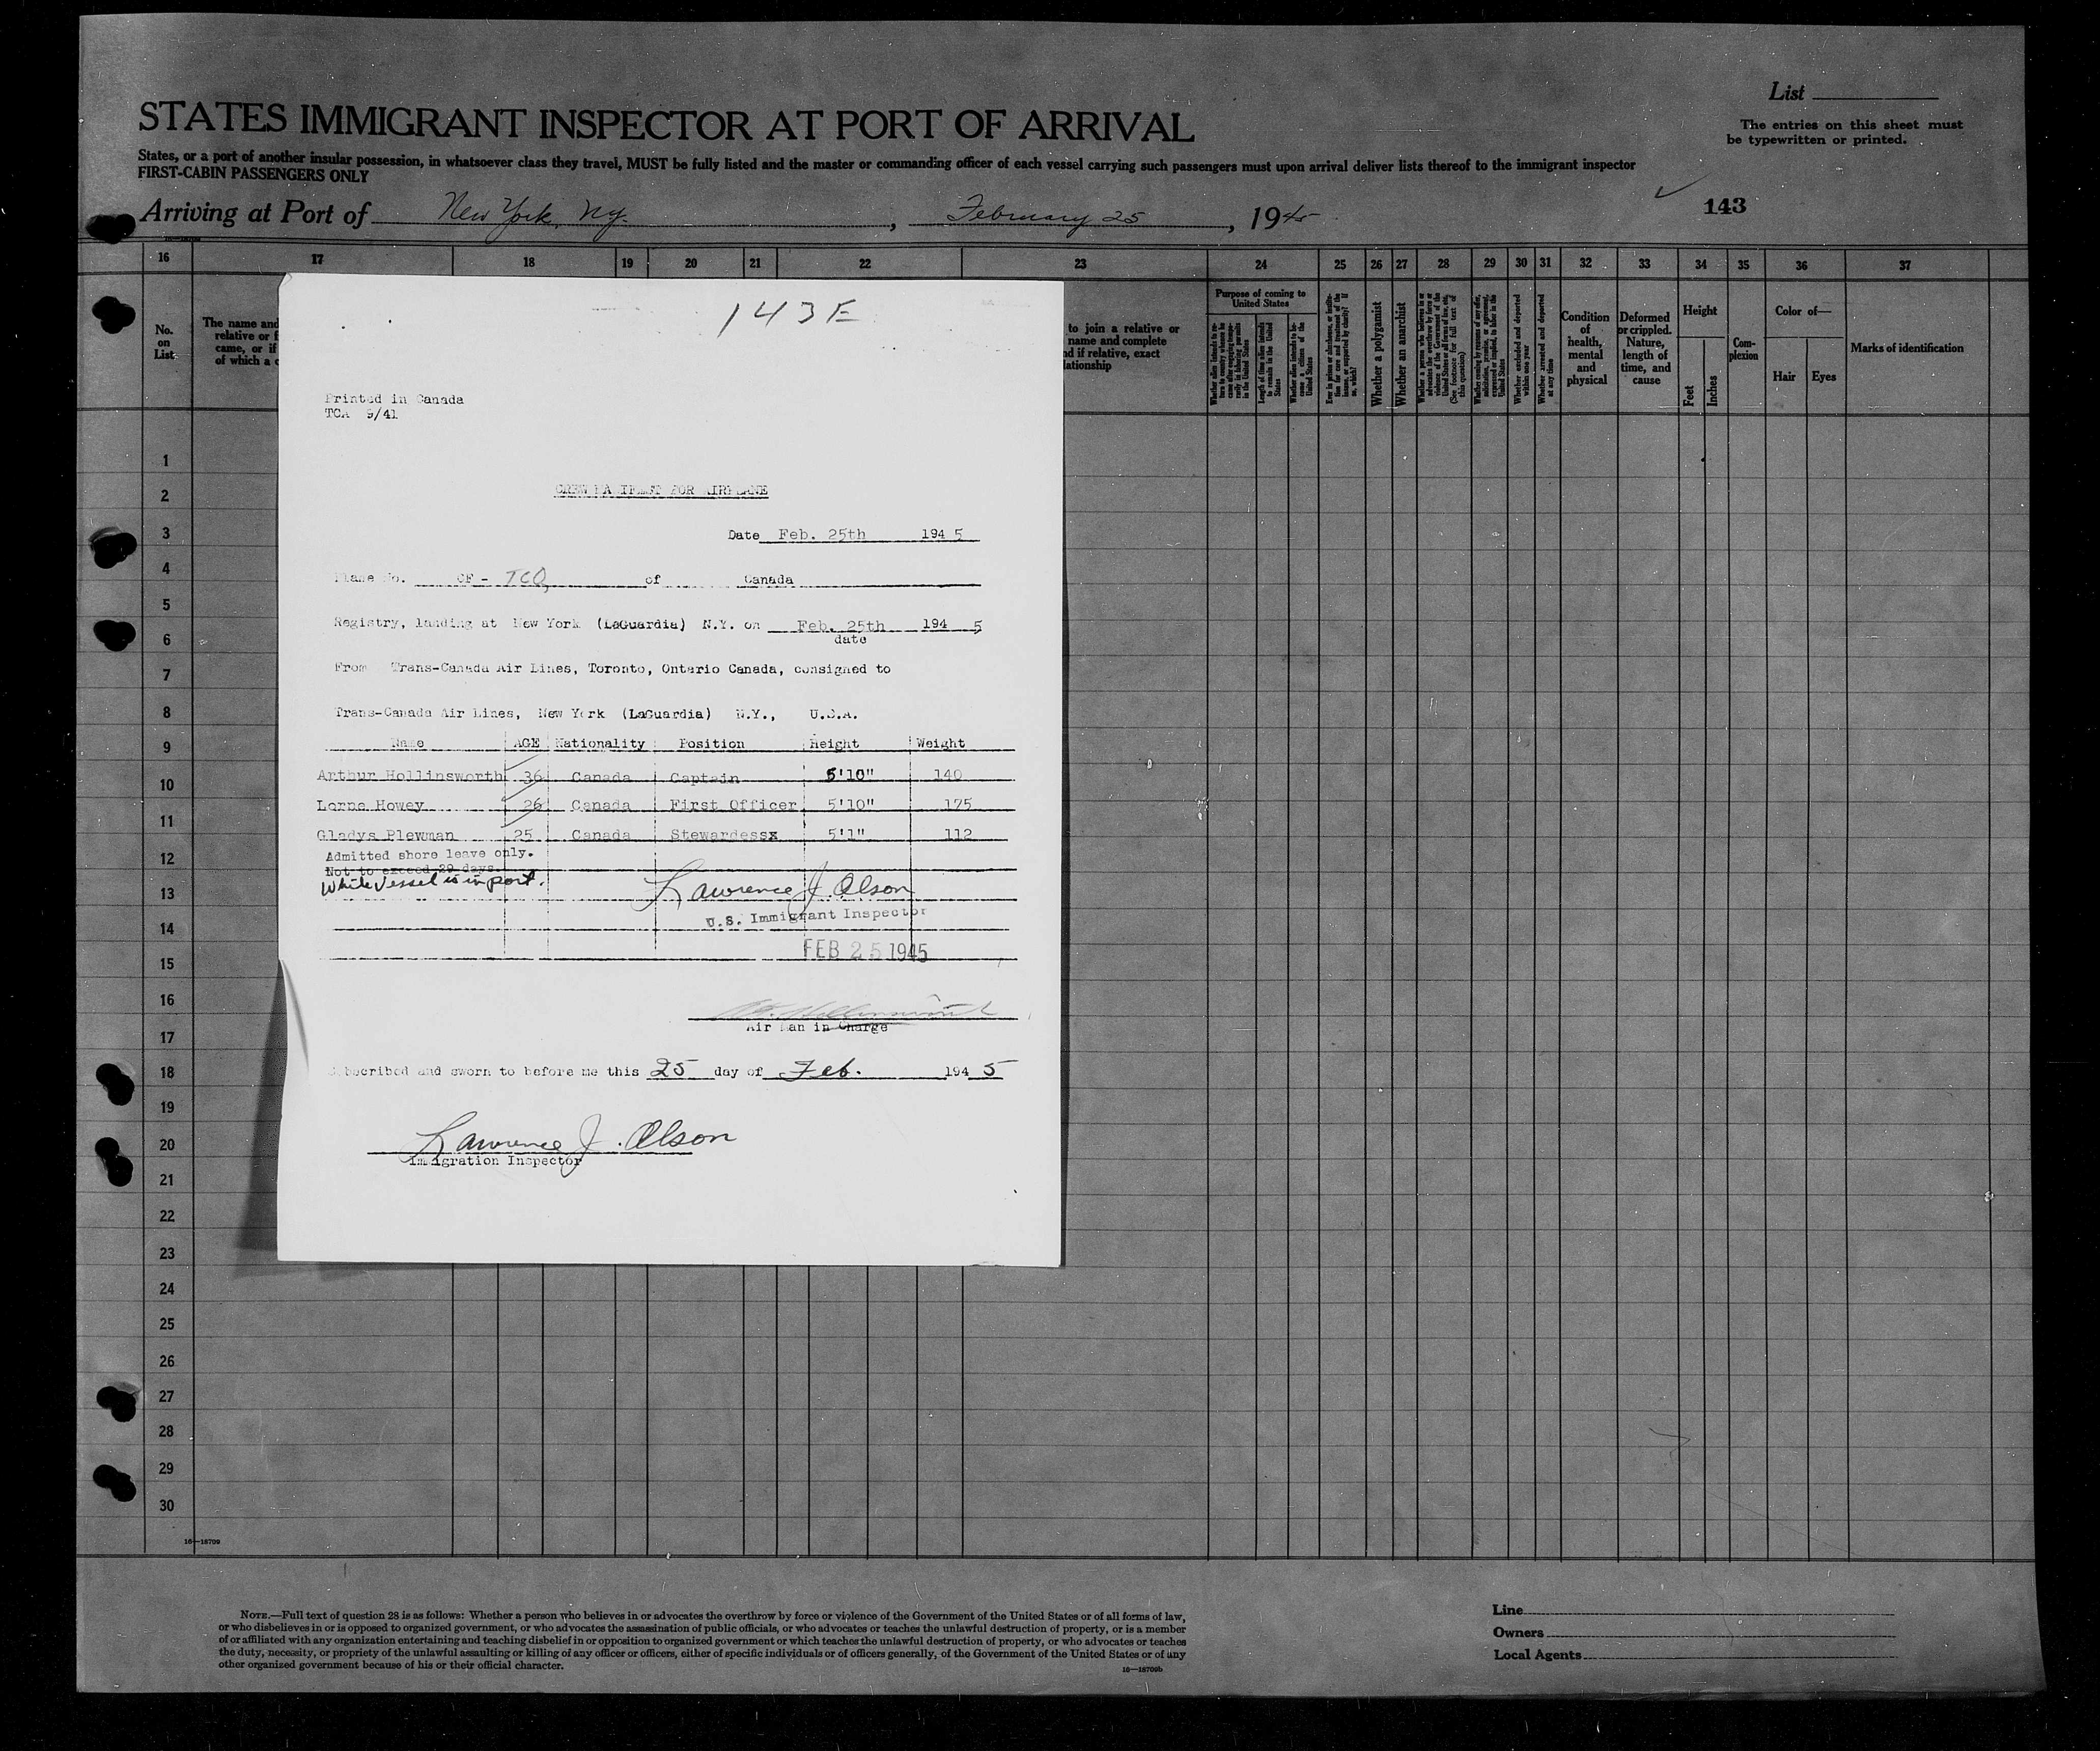 List
STATES IMMIGRANT INSPECTOR AT PORT OF ARRIVAL
The entries on this sheet must
be typewritten or printed.
States, or a port of another insular possession, in whatsoever class they travel, MUST be fully listed and the master or commanding officer of each vessel carrying such passengers must upon arrival deliver lists thereof to the immigrant inspector
FIRST-CABIN PASSENGERS ONLY
Arriving at Port of New York, Ny. , February 25 , 1945
143
16 17 18 19 20 21 22 23 24 25 26 27 28 29 30 31 32 33 34 35 36 37
No. on List
The name and
relative or f
came, or if
of which a c
to join a relative or
name and complete
nd if relative, exact
lationship
Purpose of coming to United States
Whether a polygamist
Whether an anarchist
Condition of health, mental and physical
Deformed or crippled. Nature, length of time, and cause
Height
Feet
Inches
Complexion
Color of—
Hair
Eyes
Marks of identification
143E
Printed in Canada
TCA 9/41
CREW MANIFEST FOR AIRPLANE
Date Feb. 25th 194 5
Plane No. CF - TCQ of Canada
Registry, landing at New York (LaGuardia) N.Y. on Feb. 25th 194 5
date
From Trans-Canada Air Lines, Toronto, Ontario Canada, consigned to
Trans-Canada Air Lines, New York (LaGuardia) N.Y., U.S.A.
Name AGE Nationality Position Height Weight
Arthur Hollinsworth 36 Canada Captain 5'10" 140
Lorne Howey 26 Canada First Officer 5'10" 175
Gladys Plewman 25 Canada Stewardessx 5'1" 112
Admitted shore leave only.
Not to exceed 29 days.
While Vessel is in port.
Lawrence J. Olson
U.S. Immigrant Inspector
FEB 25 1945
Hollinsworth
Air Man in Charge
Subscribed and sworn to before me this 25 day of Feb. 194 5
Lawrence J. Olson
Immigration Inspector
1
2
3
4
5
6
7
8
9
10
11
12
13
14
15
16
17
18
19
20
21
22
23
24
25
26
27
28
29
30
16—18709
NOTE.—Full text of question 28 is as follows: Whether a person who believes in or advocates the overthrow by force or violence of the Government of the United States or of all forms of law,
or who disbelieves in or is opposed to organized government, or who advocates the assassination of public officials, or who advocates or teaches the unlawful destruction of property, or is a member
of or affiliated with any organization entertaining and teaching disbelief in or opposition to organized government or which teaches the unlawful destruction of property, or who advocates or teaches
the duty, necessity, or propriety of the unlawful assaulting or killing of any officer or officers, either of specific individuals or of officers generally, of the Government of the United States or of any
other organized government because of his or their official character.
16—18709b
Line
Owners
Local Agents